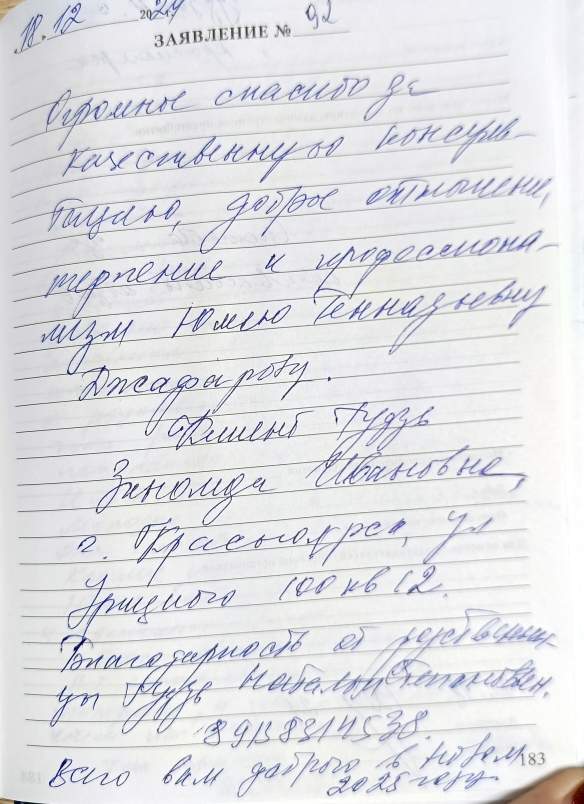 18.12 2024
ЗАЯВЛЕНИЕ № 92
Огромное спасибо за
качественную консуль-
тацию, доброе отношение,
терпение и профессиона-
лизм Юлию Геннадьевну
Джафарову.
Клиент Гудзь
Зинаида Ивановна,
г. Красноярск, ул
Урицкого 100 кв 12.
Благодарность от родственни-
цы Гудзь Натальи Степановны.
89138314538.
Всего вам доброго в новом
2025 году
183